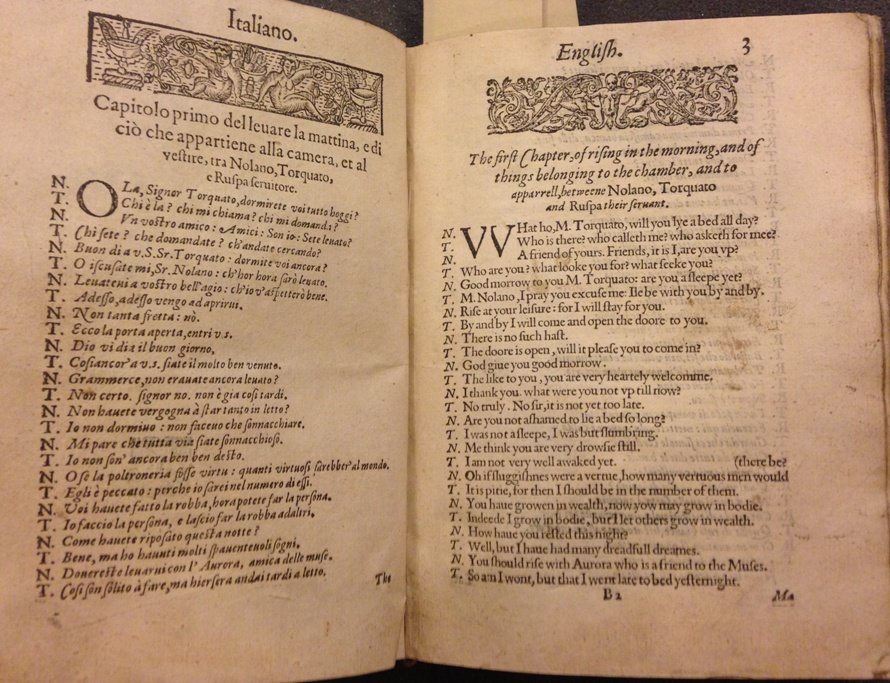 Italiano.
Capitolo primo del leuare la mattina, e di
ciò che appartiene alla camera, et al
vestire, tra Nolano, Torquato,
e Ruspa seruitore.
N. OLa, Signor Torquato, dormirete voi tutto hoggi?
T. Chi è la? chi mi chiama? chi mi domanda?
N. Vn vostro amico: Amici: Son io: Sete leuato?
T. Chi sete? che domandate? ch'andate cercando?
N. Buon di a v.S.Sr. Torquato: dormite voi ancora?
T. O iscusate mi, Sr. Nolano: ch'hor hora sarò leuato.
N. Leuateui a vostro bell'agio: ch'io v'aspetterò bene.
T. Adesso, adesso vengo ad aprirui.
N. Non tanta fretta: nò.
T. Ecco la porta aperta, entri v.s.
N. Dio vi dia il buon giorno.
T. Cosi ancor'a v.s. siate il molto ben venuto.
N. Grammerce, non erauate ancora leuato?
T. Non certo. signor no. non è gia cosi tardi.
N. Non hauete vergogna à star tanto in letto?
T. Io non dormiuo: non faceuo che sonnacchiare.
N. Mi pare che tutta via siate sonnacchioso.
T. Io non son' ancora ben ben desto.
N. O se la poltroneria fosse virtu: quanti virtuosi sarebber'al mondo.
T. Egli è peccato: perche io sarei nel numero di essi.
N. Voi hauete fatto la robba, hora potete far la persona.
T. Io faccio la persona, e lascio far la robba ad altri.
N. Come hauete riposato questa notte?
T. Bene, ma ho hauuti molti spauenteuoli sogni.
N. Dovereste leuarui con l' Aurora, amica delle muse.
T. Cosi son sòlito à fare, ma hiersera andai tardi a letto.
The
English. 3
The first Chapter, of rising in the morning, and of
things belonging to the chamber, and to
apparrell, betweene Nolano, Torquato
and Ruspa their seruant.
N. WHat ho, M. Torquato, will you lye a bed all day?
T. Who is there? who calleth me? who asketh for mee?
N. A friend of yours. Friends, it is I, are you vp?
T. Who are you? what looke you for? what seeke you?
N. Good morrow to you M. Torquato: are you a sleepe yet?
T. M. Nolano, I pray you excuse me: Ile be with you by and by.
N. Rise at your leisure: for I will stay for you.
T. By and by I will come and open the doore to you.
N. There is no such hast.
T. The doore is open, will it please you to come in?
N. God giue you good morrow.
T. The like to you, you are very heartely welcomme.
N. I thank you. what were you not vp till now?
T. No truly. No sir, it is not yet too late.
N. Are you not ashamed to lie a bed so long?
T. I was not a sleepe, I was but slumbring.
N. Me think you are very drowsie still.
T. I am not very well awaked yet. (there be?
N. Oh if sluggishnes were a vertue, how many vertuous men would
T. It is pitie, for then I should be in the number of them.
N. You haue growen in wealth, now yow may grow in bodie.
T. Indeede I grow in bodie, but I let others grow in wealth.
N. How haue you rested this night?
T. Well, but I haue had many dreadfull dreames.
N. You should rise with Aurora who is a friend to the Muses.
T. So am I wont, but that I went late to bed yesternight.
B2 Ma